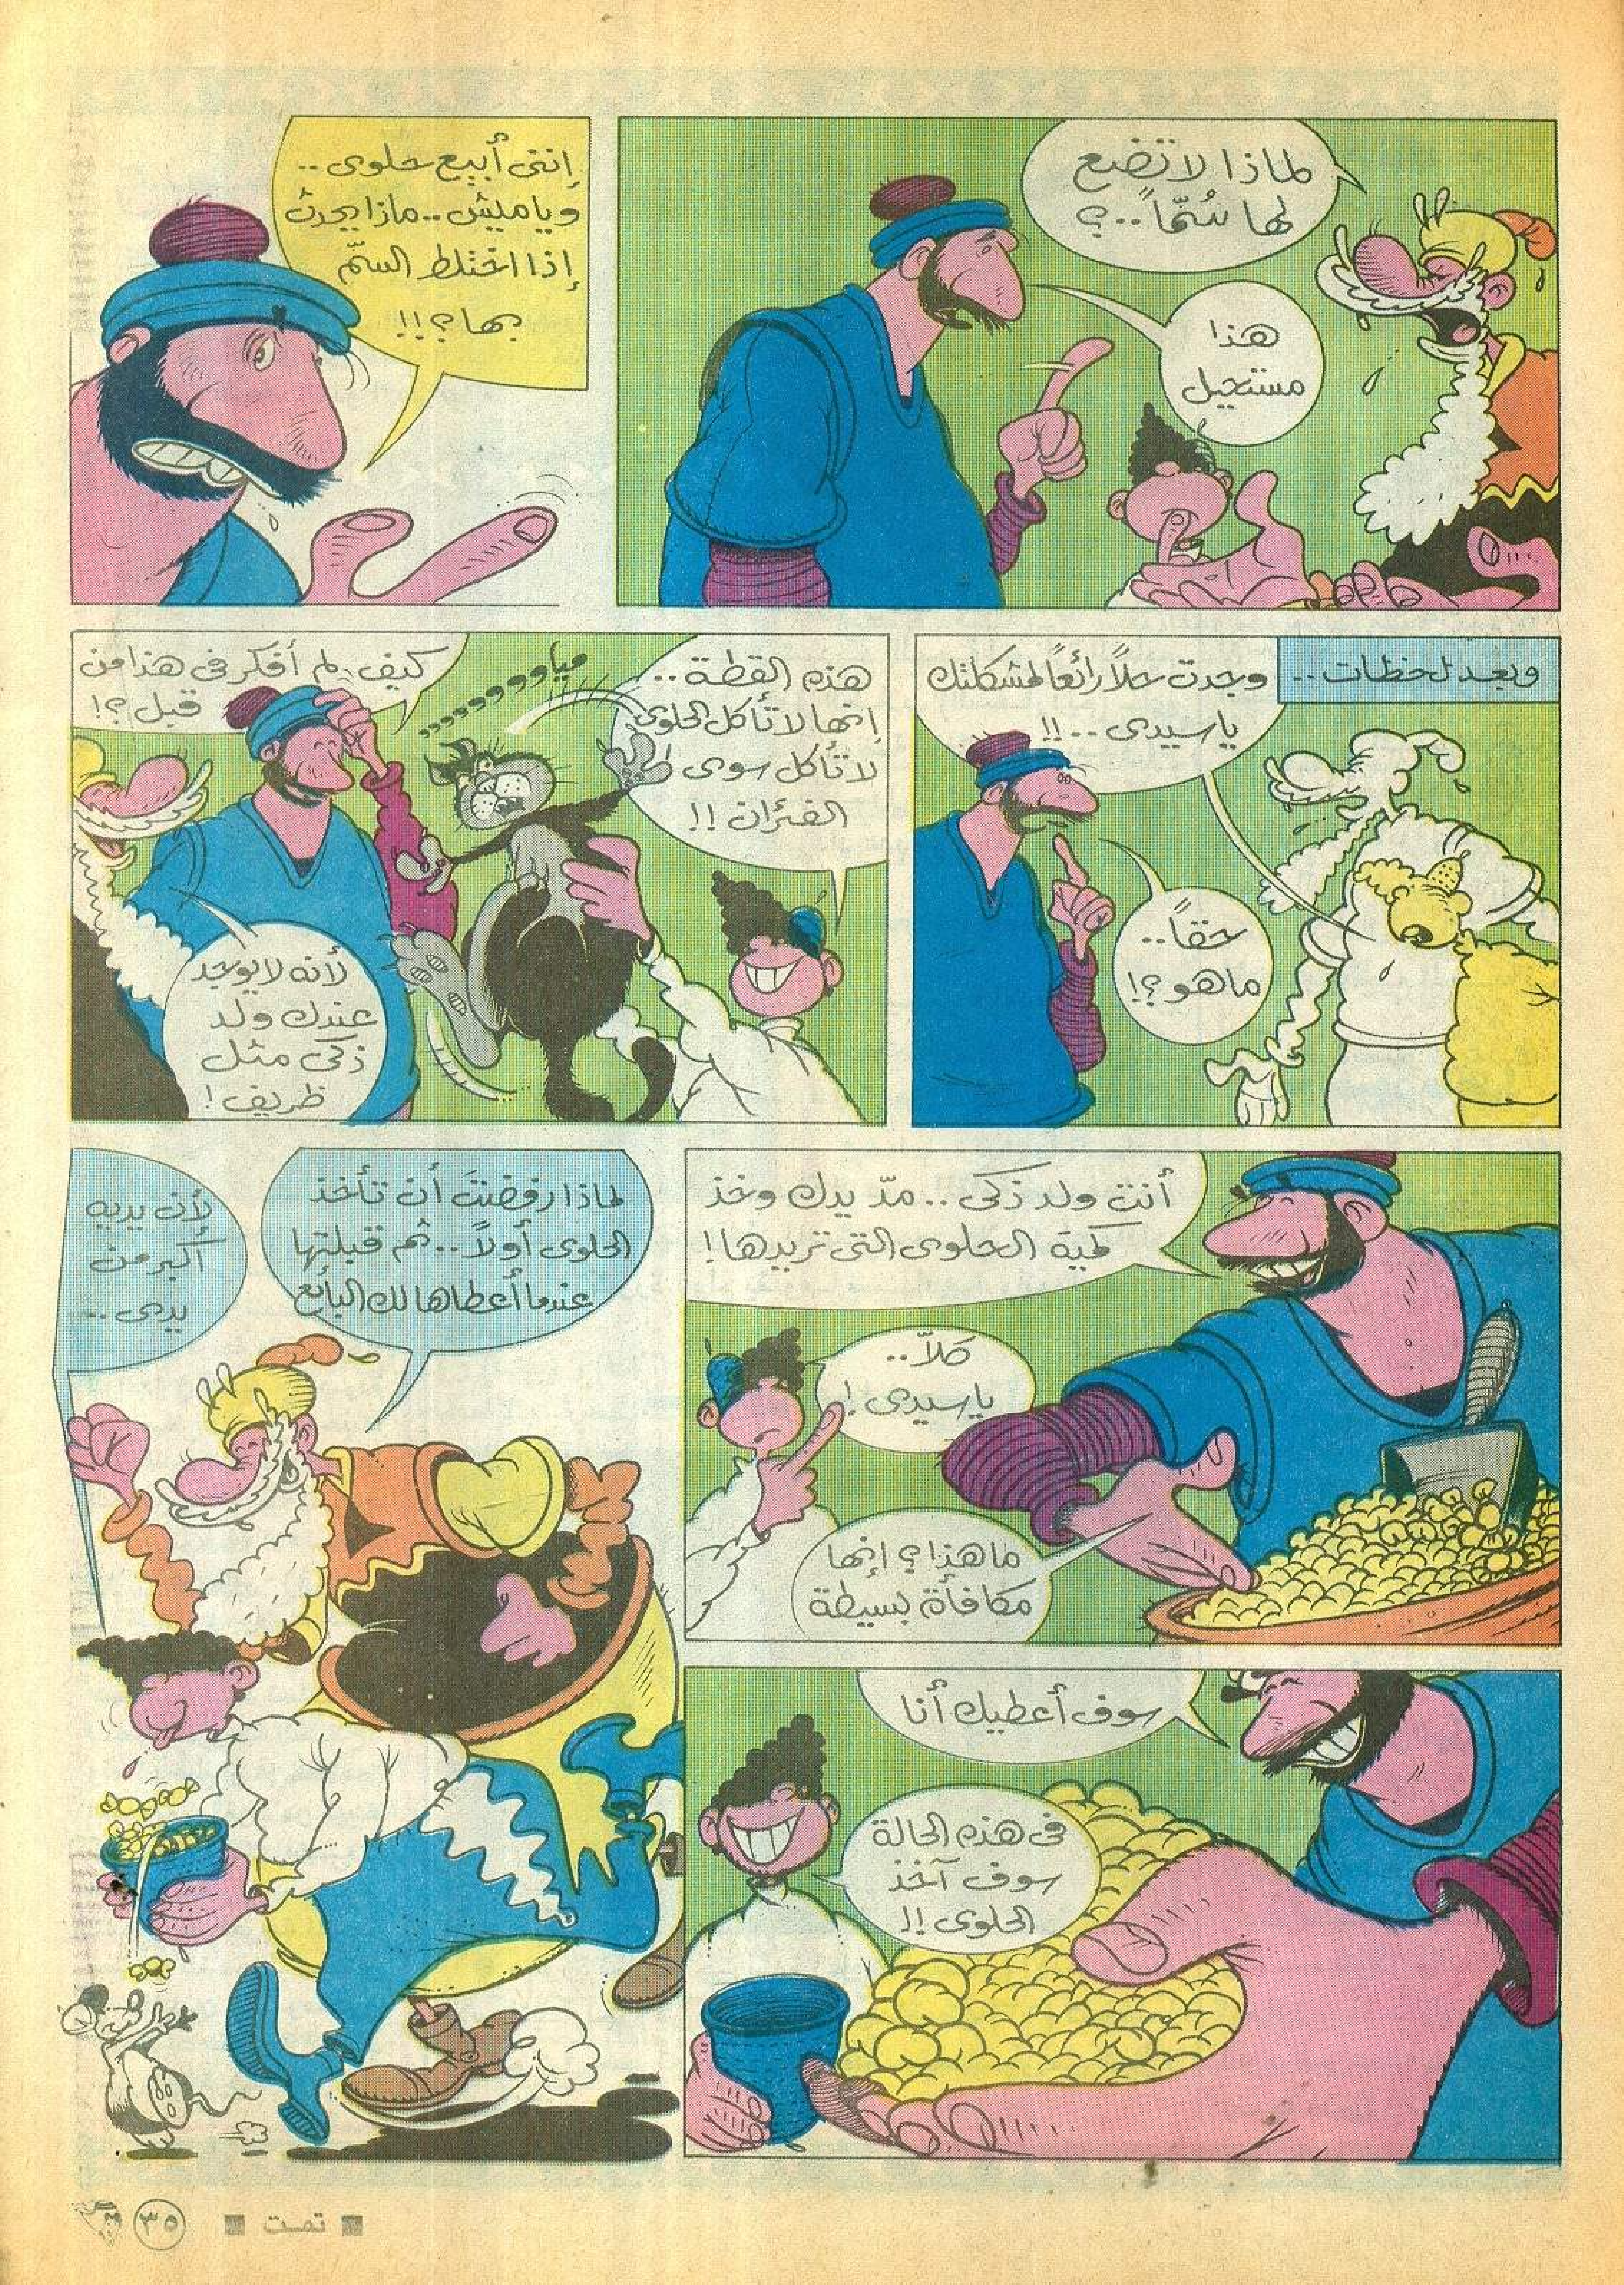 لماذا لا تضع
لها سُمّاً..؟
هذا
مستحيل
إننى أبيع حلوى..
ويامليش.. ماذا يحدث
إذا اختلط السمّ
بها؟!!
وبعد لحظات..
وجدت حلاً رائعاً لمشكلتك
ياسيدى..!!
حقاً..
ماهو؟!
هذه القطة..
إنها لا تأكل الحلوى
لا تأكل سوى
الفئران!!
مياووووو
كيف لم أفكر فى هذا من
قبل؟!
لأنه لا يوجد
عندك ولد
ذكى مثل
ظريف!
أنت ولد ذكى.. مدّ يدك وخذ
كمية الحلوى التى تريدها!
كلاّ..
ياسيدى!
ماهذا؟ إنها
مكافأة بسيطة
سوف أعطيك أنا
فى هذه الحالة
سوف آخذ
الحلوى!!
لماذا رفضت أن تأخذ
الحلوى أولاً.. ثم قبلتها
عندما أعطاها لك البائع
لأن يديه
أكبر من
يدى..
تمت
٣٥